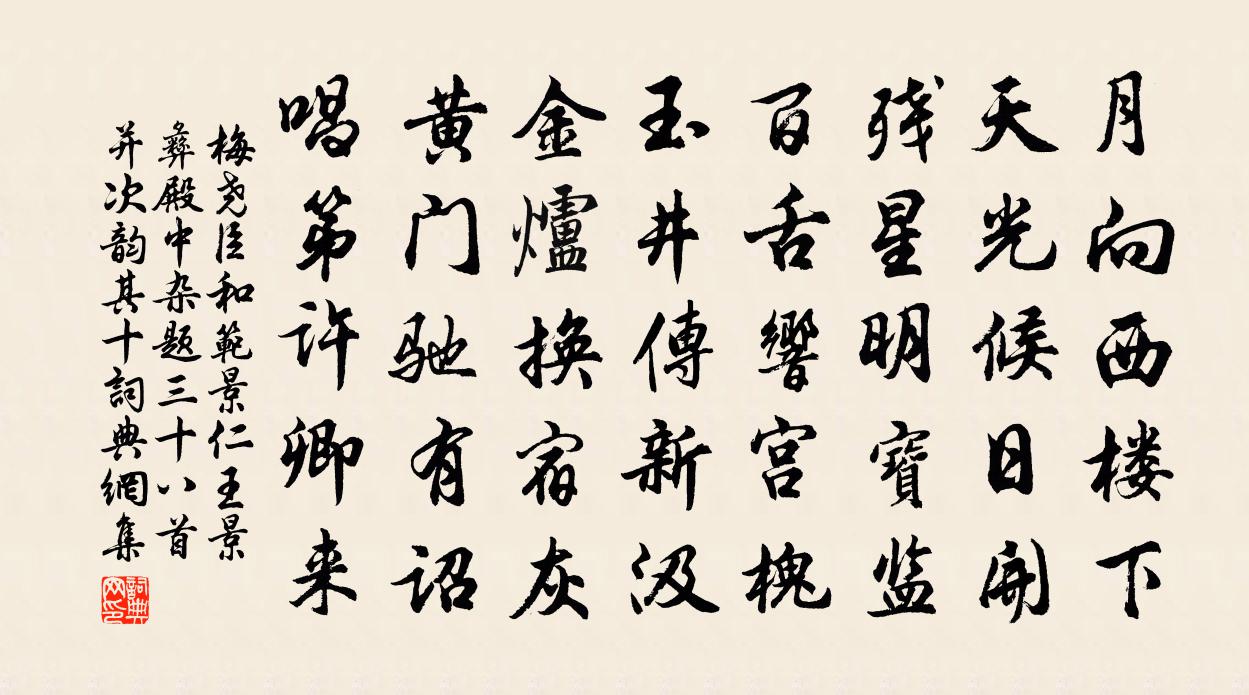 月向西楼下
天光候日開
残星明寶监
百舌響宫槐
玉井傳新汲
金爐换宿灰
黄门驰有诏
唱第许卿来
梅尧臣和範景仁王景
彝殿中杂题三十八首
并次韵其十詞典網集
詞典网印